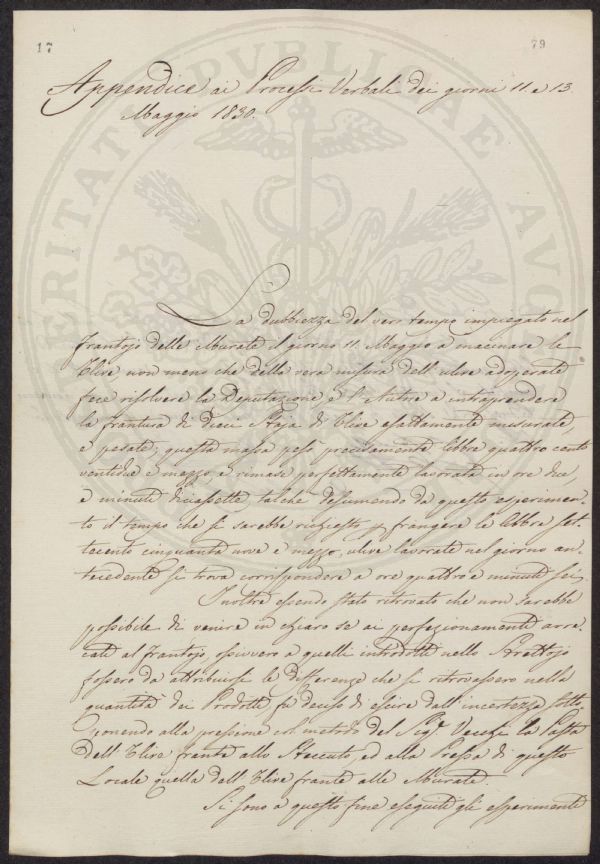 17
79
Appendice ai Processi Verbali dei giorni 11 e 13
Maggio 1830.
La dubbiezza del vero tempo impiegato nel
Frantojo delle Murate il giorno 11. Maggio a macinare le
Ulive, non meno che della vera misura dell'ulive adoperate
fece risolvere la Deputazione e l'Autore a intraprendere
la frantura di Dieci Staja di Ulive esattamente misurate,
e pesate; questa massa pesò precisamente libbre quattro cento
ventidue e mezzo, e rimase perfettamente lavorata in ore due,
e minuti diciassette talchè desumendo da questo esperimen-
to il tempo che si sarebbe richiesto p frangere le libbre set-
tecento cinquanta nove e mezzo, ulive lavorate nel giorno an-
tecedente si trova corrispondere a ore quattro e minuti sei.
Inoltre essendo stato ritrovato che non sarebbe
possibile di venire in chiaro se ai perfezionamenti arre-
cati al frantojo ossivvero a quelli introdotti nello Strettojo
fossero da attribuirsi le differenze che si ritrovassero nella
quantità dei Prodotti fu deciso di escire dall'incertezza sotto-
ponendo alla pressione col metodo del Sigr Vecchj la Pasta
dell'Ulive frante allo Steccuto, ed alla Pressa di questo
Locale quella dell'Ulive frante alle Murate.
Si sono a questo fine eseguiti gli esperimenti
VERITATI REIPVBLICAE AVGO